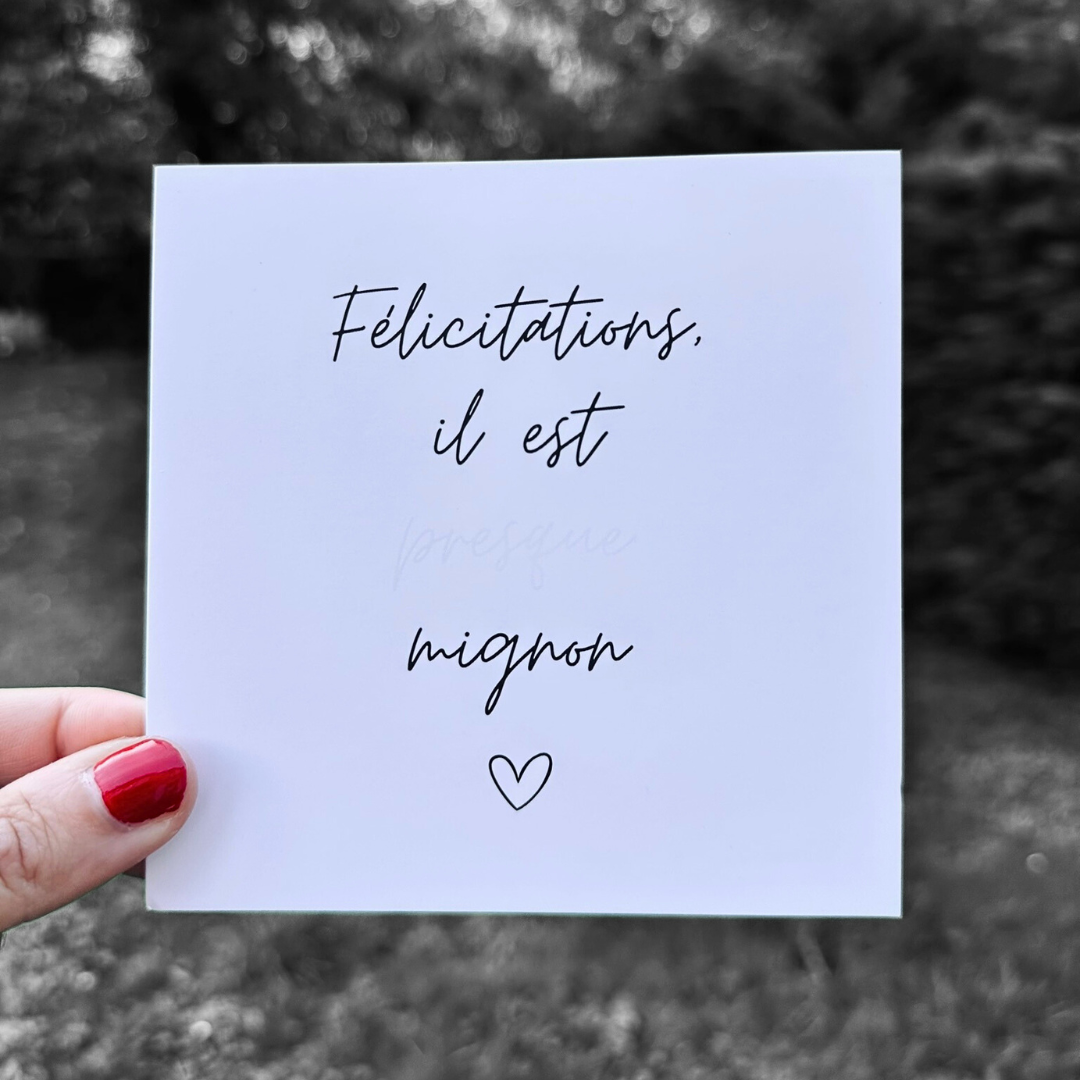 Félicitations,
il est
presque
mignon